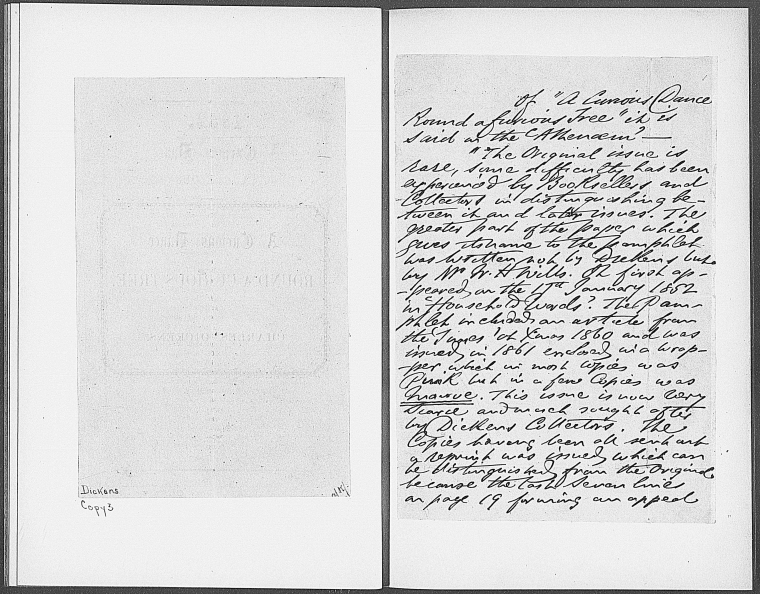 A Curious Dance
ROUND A CURIOUS TREE
CHARLES DICKENS
Dickens
Copy 3
of "A Curious Dance
Round a Curious Tree" it is
said in the "Athenæum"—
"The Original issue is
rare, some difficulty has been
experienced by Booksellers and
Collectors in distinguishing be-
tween it and later issues. The
greater part of the paper which
gives its name to the pamphlet
was written not by Dickens but
by Mr W. H Wills. It first ap-
-peared, on the 17th January 1852
in "Household Words". The Pam-
phlet included an article from
the 'Times' of Xmas 1860 and was
issued in 1861 enclosed in a wrap-
-per which in most copies was
Pink but in a few Copies was
Mauve. This issue is now very
scarce and much sought after
by Dickens Collectors. The
Copies having been all sent out
a reprint was issued which can
be distinguished from the Original
because the last seven lines
on page 19 forming an appeal